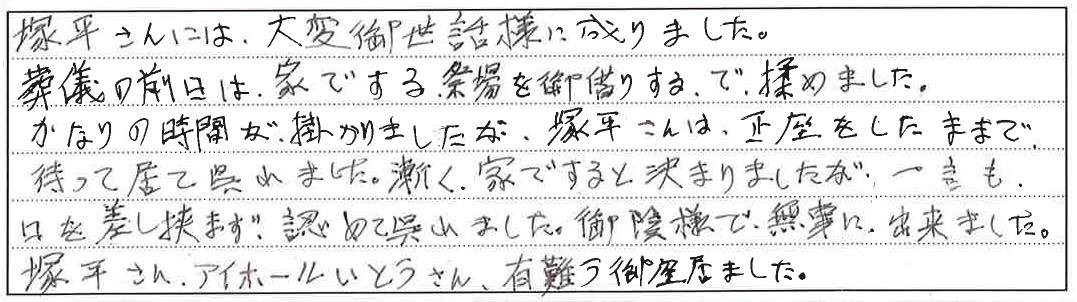 塚平さんには、大変御世話様に成りました。
葬儀の前日は、家でする、祭場を御借りする、で、揉めました。
かなりの時間が、掛かりましたが、塚平さんは、正座をしたままで、
待って居て呉れました。漸く、家ですると、決まりましたが、一言も、
口を差し挟まず、認めて呉れました。御陰様で、無事に、出来ました。
塚平さん、アイホールいとうさん、有難う御座居ました。